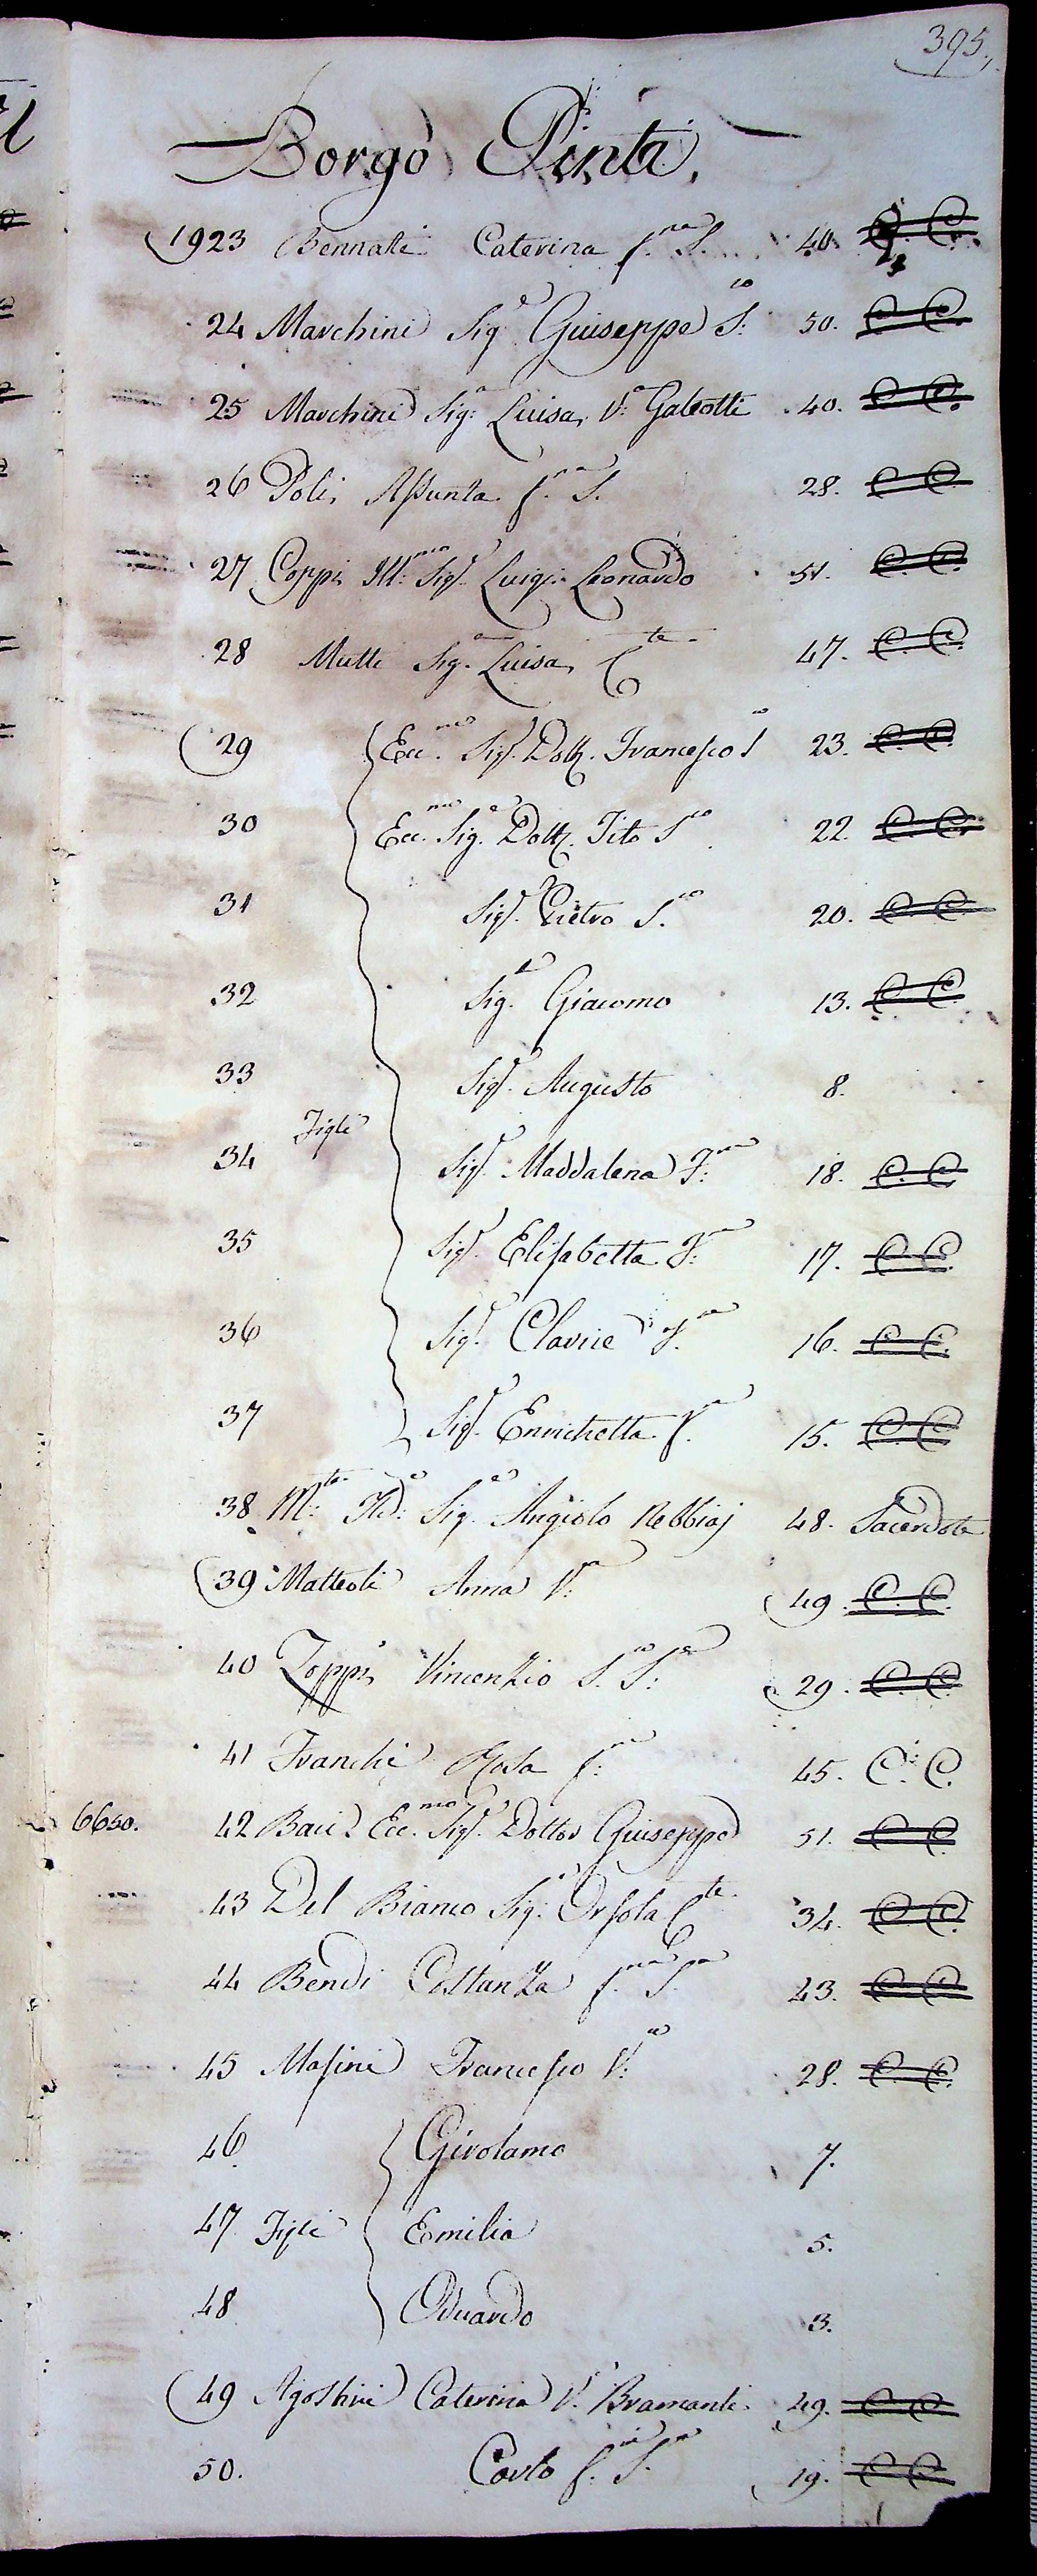 395.
Borgo Pinti.
1923 Bennati Caterina f.na S. 40. C. C.
24 Marchini Sig.e Giuseppe S:co 50. C. C.
25 Marchini Sig:a Luisa V:a Galeotti 40. C. C.
26 Poli Assunta f.na S. 28. C. C.
27 Coppi Ill:mo Sig.r Luigi Leonardo 51. C. C.
28 Mutti Sig.a Luisa C.te 47. C. C.
29 Ecc.mo Sig.r Dott. Francesco S.co 23. C. C.
30 Ecc.mo Sig.e Dott. Tito S.co 22. C. C.
31 Sig.r Pietro S.co 20. C. C.
32 Sig.e Giacomo 13. C. C.
33 Sig.r Augusto 8.
Figli
34 Sig.a Maddalena F:na 18. C. C.
35 Sig.a Elisabetta F:na 17. C. C.
36 Sig.a Clarice F.na 16. C. C.
37 Sig.a Enrichetta f.na 15. C. C.
38 M:to Rd:o Sig.e Angiolo Rebbiaj 48. Sacerdote
39 Matteoli Anna V:a 49. C. C.
40 Zoppi Vincenzio S.co S:re 29. C. C.
41 Franchi Rosa f:na 45. C. C.
6650. 42 Baci Ecc.mo Sig.r Dottor Giuseppe 51. C. C.
43 Del Bianco Sig:a Orsola C.te 34. C. C.
44 Bendi Costanza f.na S.va 23. C. C.
45 Masini Francesco V:o 28. C. C.
46 Girolamo 7.
47 Figli Emilia 5.
48 Oduardo 3.
49 Agostini Caterina V.a Bramanti 49. C. C.
50. Carlo 19. C. C.